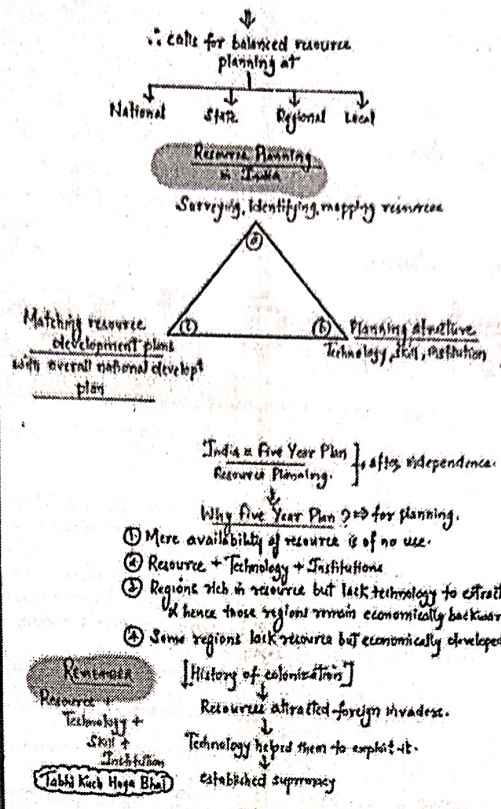 ∴ calls for balanced resource
planning at
National State Regional Local
Resource Planning
in India
Surveying, identifying, mapping resources
(a)
(c) (b)
Matching resource
development plans
with overall national developt
plan
Planning structure
Technology, skill, institution
India = Five Year Plan
Resource Planning.
}, after independence.
Why Five Year Plan ? => for planning.
① Mere availability of resource is of no use.
② Resource + Technology + Institutions
③ Regions rich in resource but lack technology to extract
& hence those regions remain economically backwar
④ Some regions lack resource but economically developed
REMEMBER
Resource +
Technology +
Skill +
Institution
Tabhi Kuch Hoga Bhai
[History of colonization]
Resources attracted foreign invaders.
Technology helped them to exploit it.
established supremacy